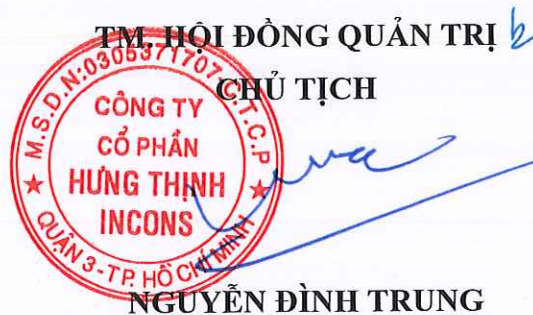 TM. HỘI ĐỒNG QUẢN TRỊ
CHỦ TỊCH
M.S.D.N:0305371707-C.T.C.P
CÔNG TY
CỔ PHẦN
HƯNG THỊNH
INCONS
QUẬN 3-TP. HỒ CHÍ MINH
NGUYỄN ĐÌNH TRUNG